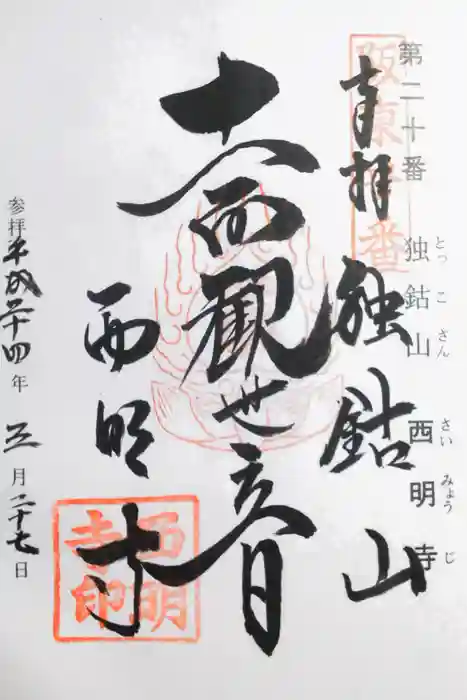 第二十番 独鈷山 西明寺
とっこさん さいみょうじ
阪東廿番
奉拝 独鈷山
十一面観世音
西明寺
西明寺印
参拝 平成二十四年 三月二十七日